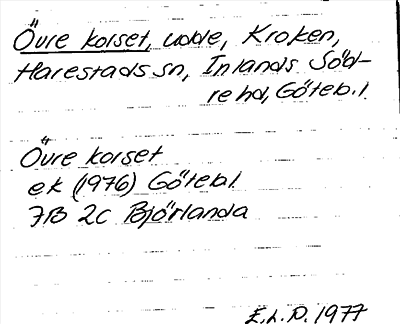 Övre korset, udde, Kroken,
Harestads sn, Inlands Söd-
re hd, Göteb. l.
Övre korset
ek (1976) Götebl.
7B 2c Björlanda
E.L.P. 1977